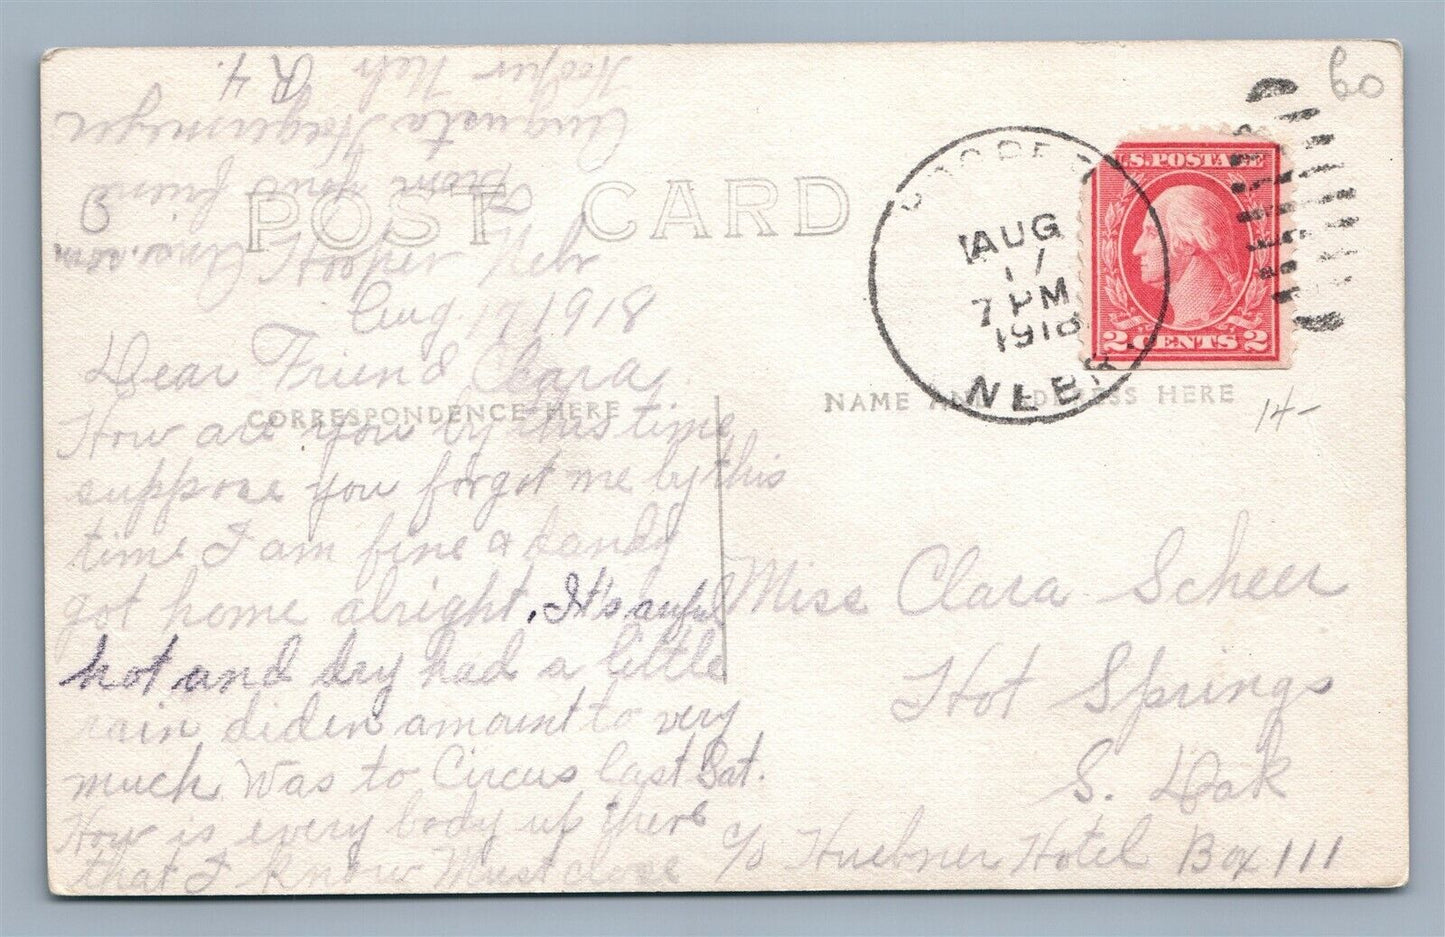 POST CARD
Hooper Neb
Aug 17 1918
Dear Friend Clara.
CORRESPONDENCE HERE
How are you by this time
suppose you forgot me by this
time I am fine & handy
got home alright. It's awful
hot and dry had a little
rain diden amount to very
much Was to Circus last Sat.
How is every body up there
that I know Must close
Ans. soon
from your friend
Augusta Hegermeyer
Hooper Neb R 4.
HOOPER
AUG
17
7 PM
1918
NEBR.
U.S. POSTAGE
2 CENTS 2
60
NAME AND ADDRESS HERE
14-
Miss Clara Scheer
Hot Springs
S. Dak
c/o Huebner Hotel Box 111